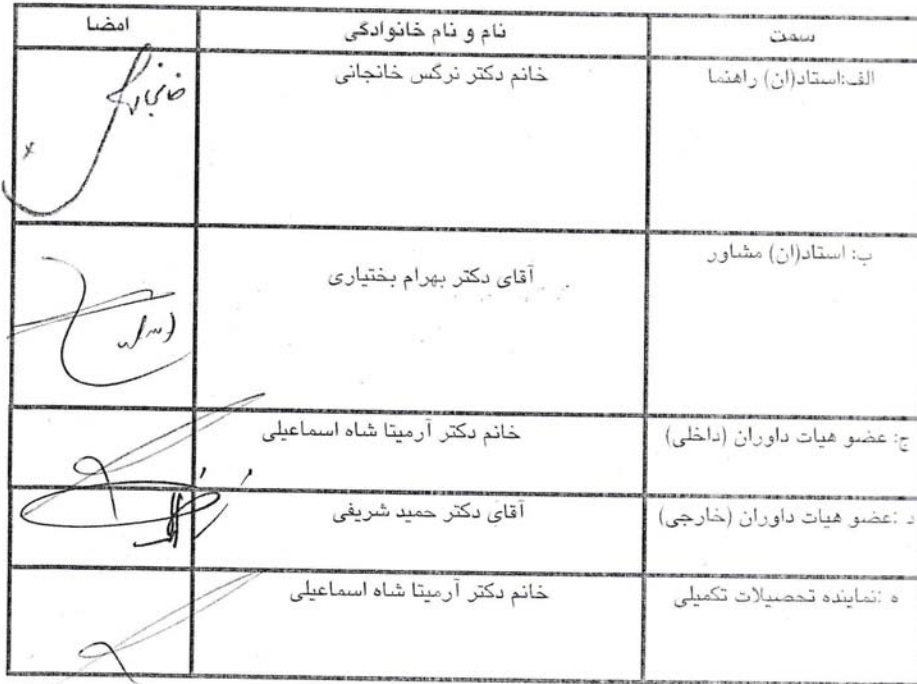 سمت نام و نام خانوادگی امضا
الف:استاد(ان) راهنما خانم دکتر نرگس خانجانی خانجانی
ب: استاد(ان) مشاور آقای دکتر بهرام بختیاری
ج: عضو هیات داوران (داخلی) خانم دکتر آرمیتا شاه اسماعیلی
د :عضو هیات داوران (خارجی) آقای دکتر حمید شریفی
ه :نماینده تحصیلات تکمیلی خانم دکتر آرمیتا شاه اسماعیلی